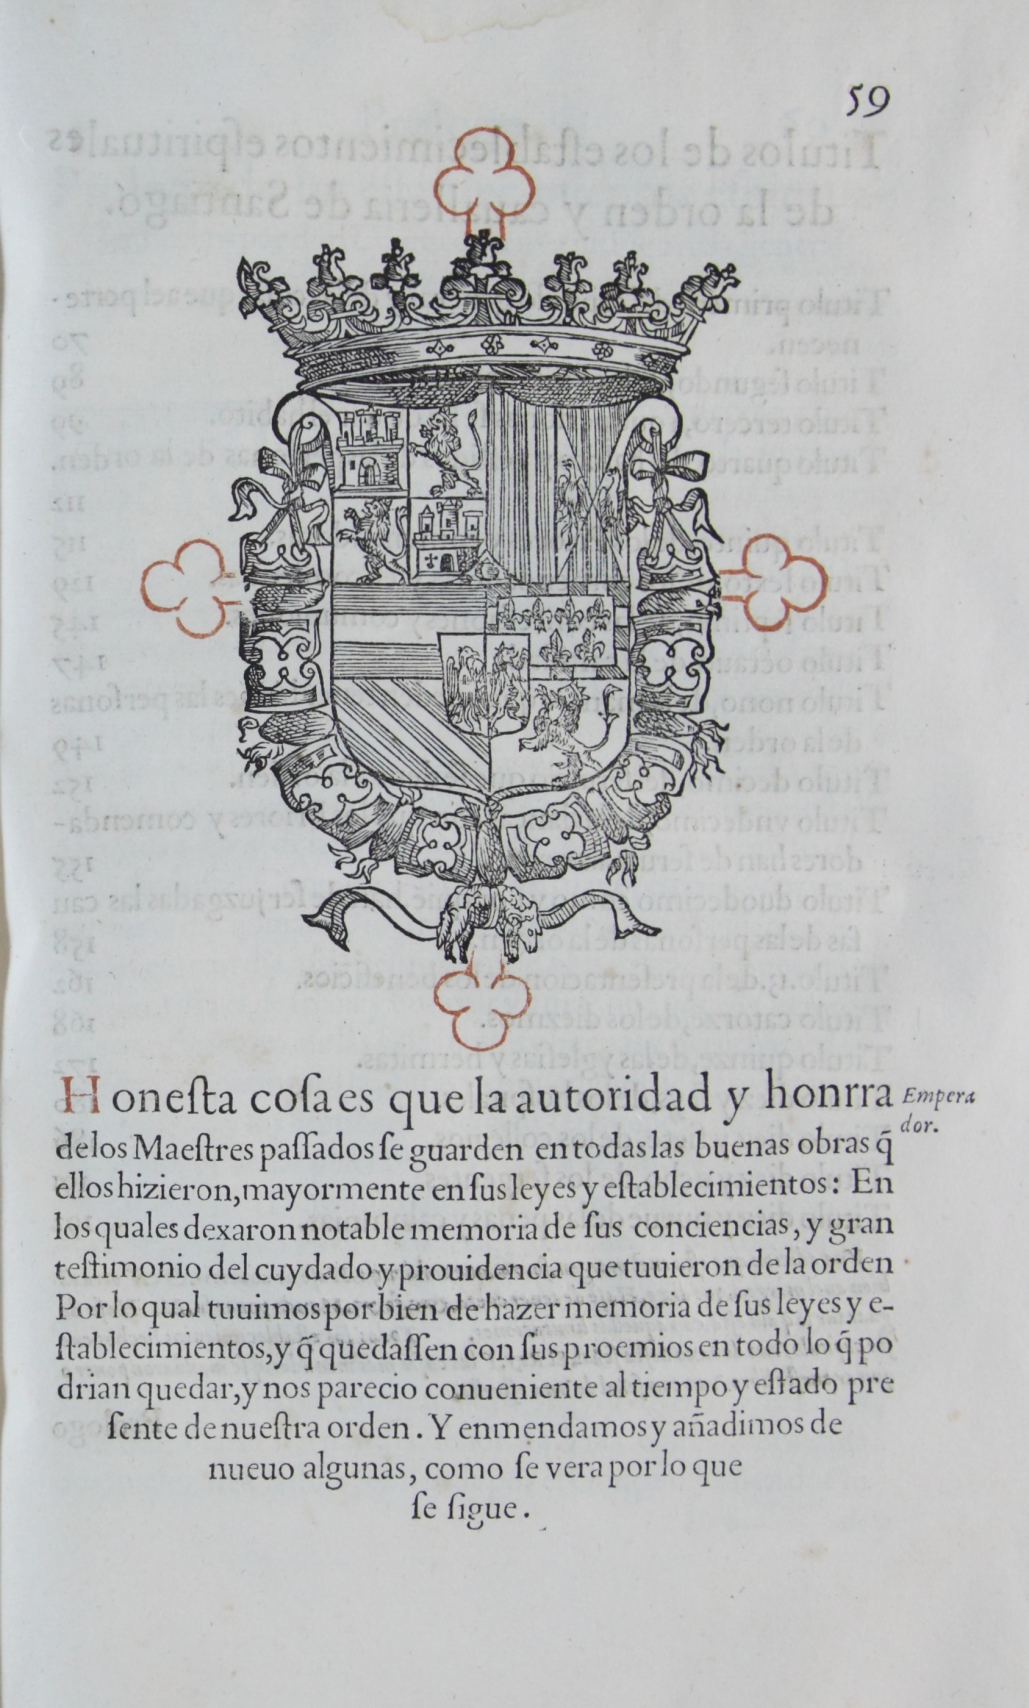 59
Honeſta coſa es que la autoridad y honrra
Empera
dor.
delos Maeſtres paſſados ſe guarden en todas las buenas obras q̃
ellos hizieron, mayormente en ſus leyes y eſtablecimientos: En
los quales dexaron notable memoria de ſus conciencias, y gran
teſtimonio del cuydado y prouidencia que tuuieron de la orden
Por lo qual tuuimos por bien de hazer memoria de ſus leyes y e-
ſtablecimientos, y q̃ quedaſſen con ſus proemios en todo lo q̃ po
drian quedar, y nos parecio conueniente al tiempo y eſtado pre
ſente de nueſtra orden. Y enmendamos y añadimos de
nueuo algunas, como ſe vera por lo que
ſe ſigue.